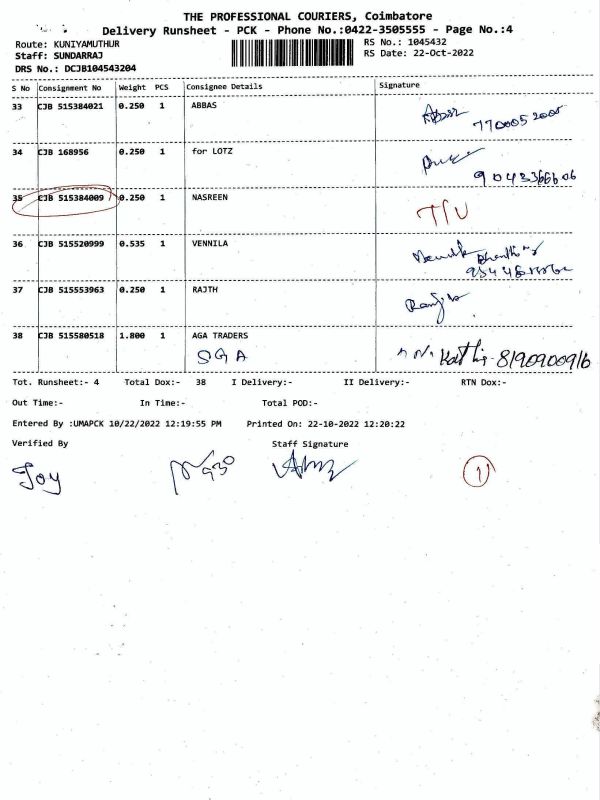 THE PROFESSIONAL COURIERS, Coimbatore
Delivery Runsheet - PCK - Phone No.:0422-3505555 - Page No.:4
Route: KUNIYAMUTHUR
RS No.: 1045432
Staff: SUNDARRAJ
RS Date: 22-Oct-2022
DRS No.: DCJB104543204
S No Consignment No Weight PCS Consignee Details Signature
33 CJB 515384021 0.250 1 ABBAS
34 CJB 168956 0.250 1 for LOTZ
35 CJB 515384009 0.250 1 NASREEN
36 CJB 515520999 0.535 1 VENNILA
37 CJB 515553963 0.250 1 RAJTH
38 CJB 515580518 1.800 1 AGA TRADERS
SGA
8190900916
Tot. Runsheet:- 4 Total Dox:- 38 I Delivery:- II Delivery:- RTN Dox:-
Out Time:- In Time:- Total POD:-
Entered By :UMAPCK 10/22/2022 12:19:55 PM Printed On: 22-10-2022 12:20:22
Verified By Staff Signature
Joy